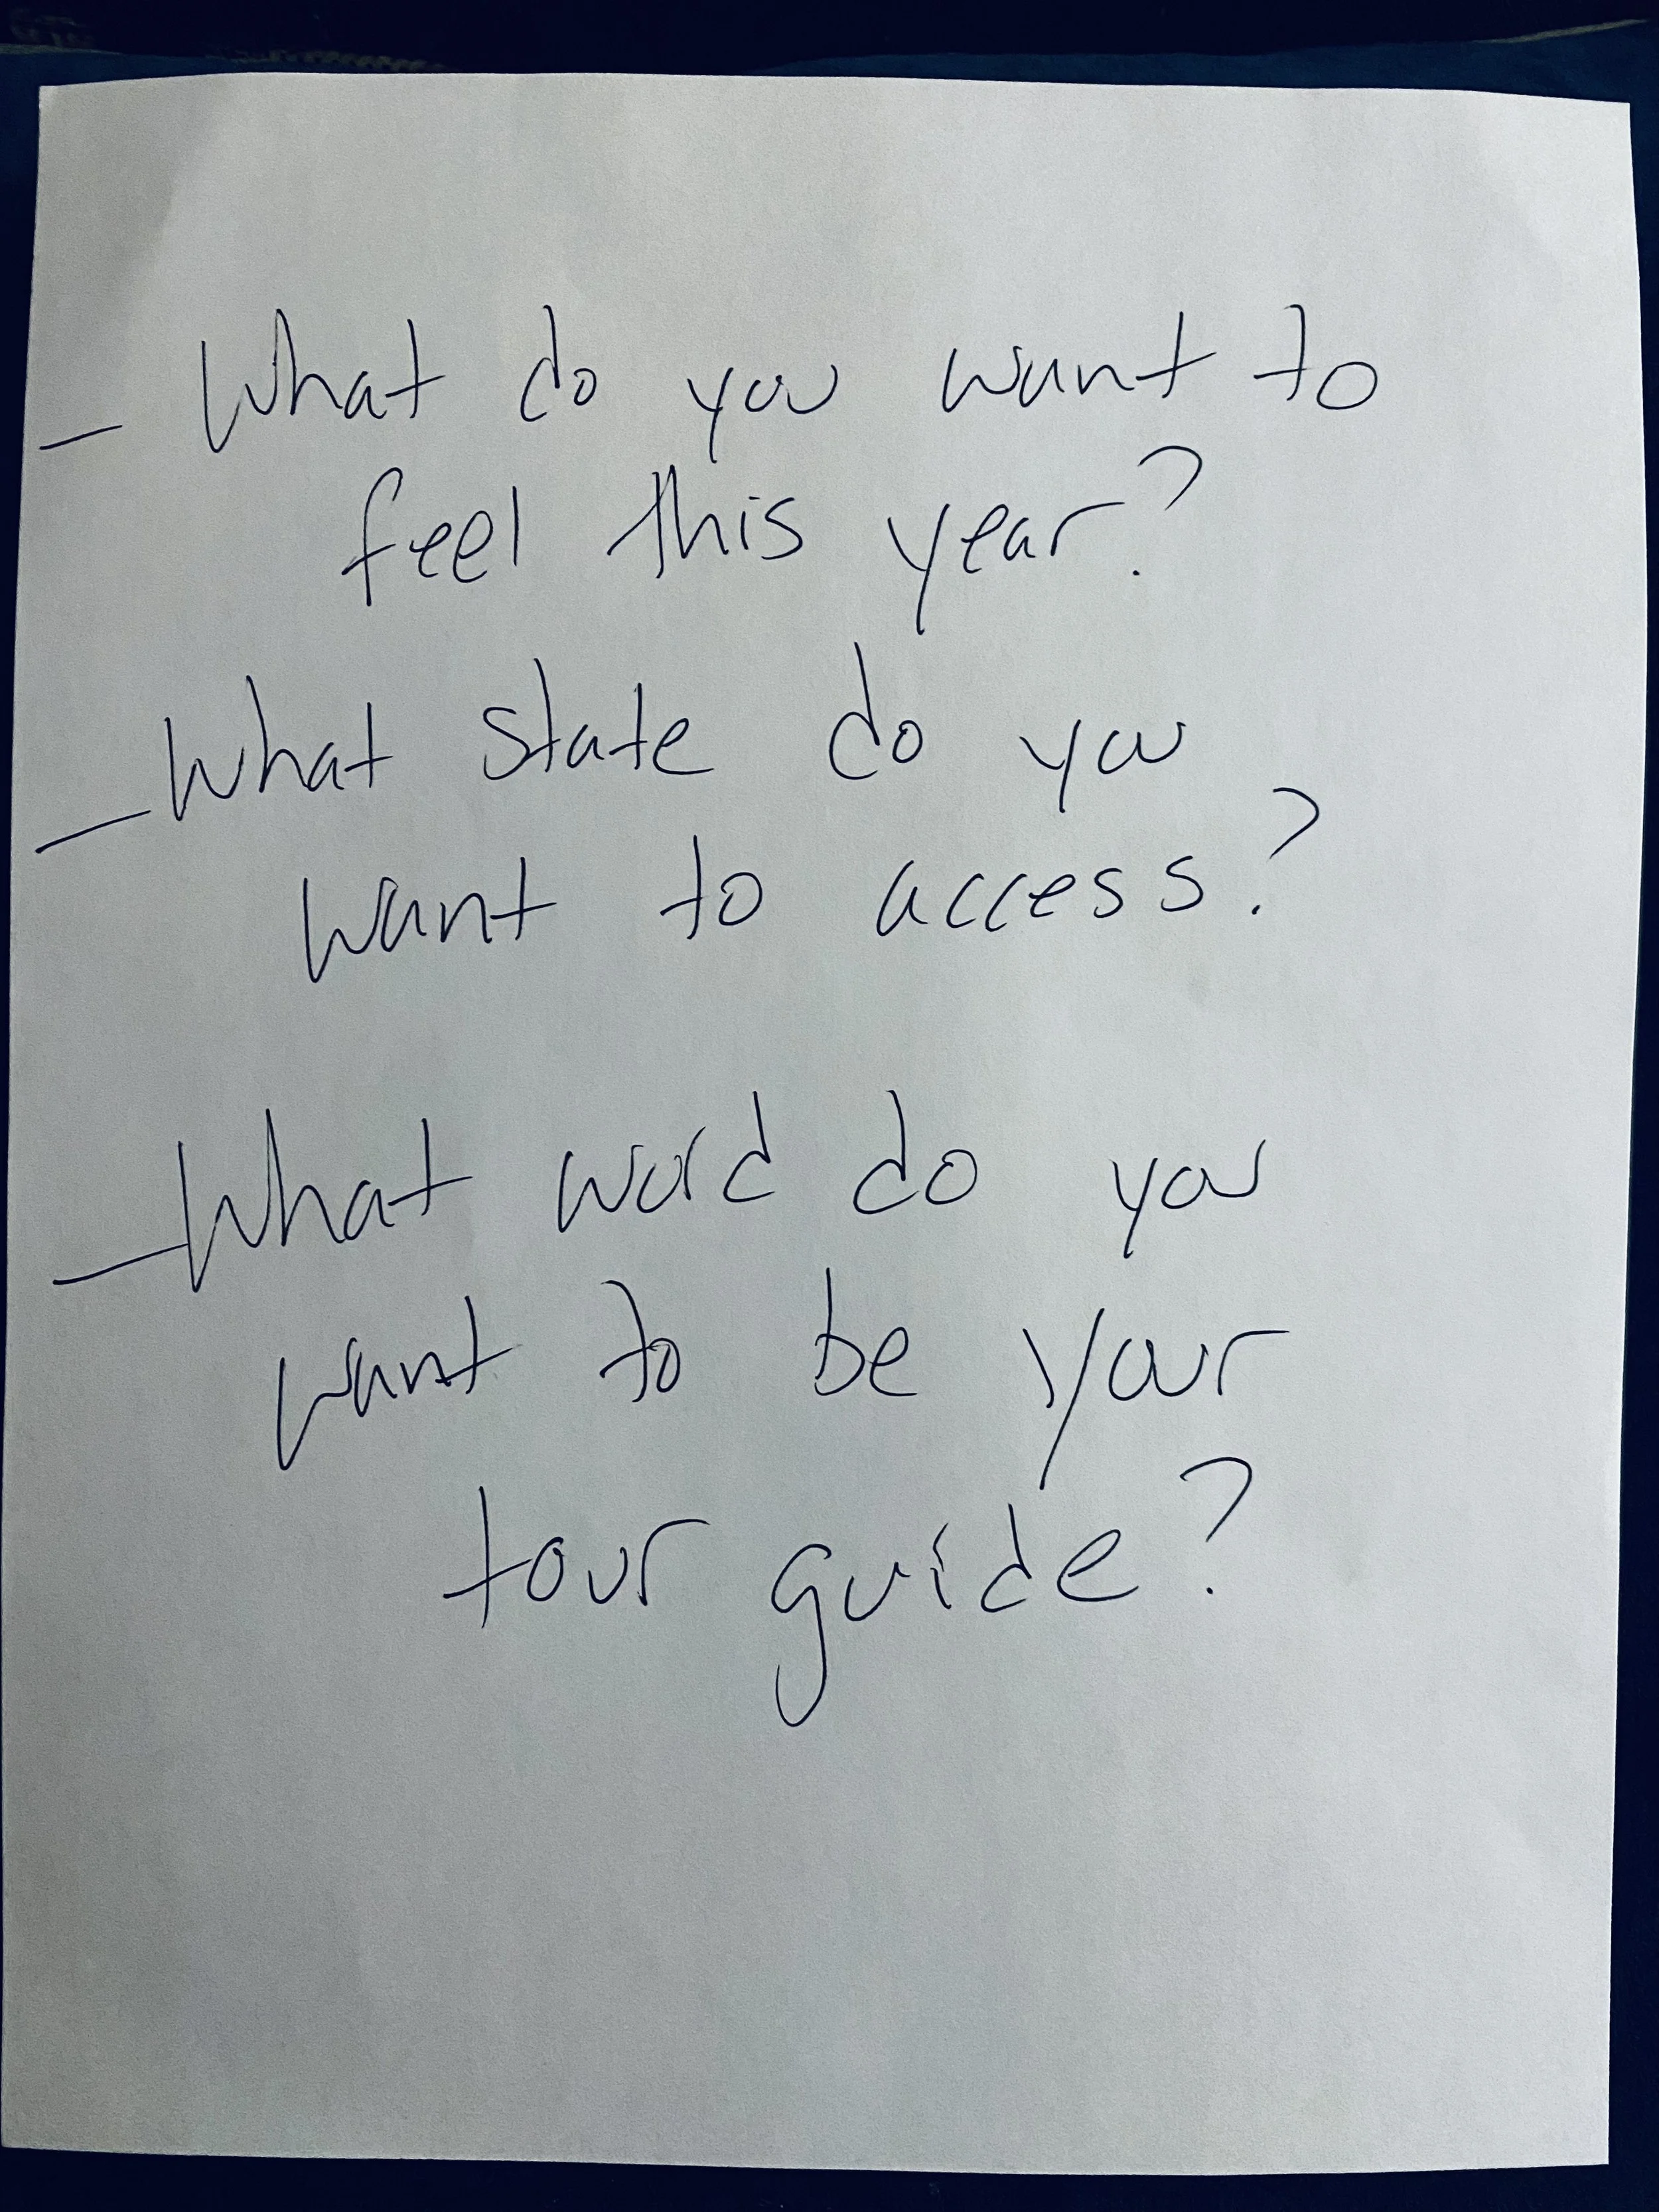 - What do you want to
feel this year?
- What state do you
want to access?
- What word do you
want to be your
tour guide?